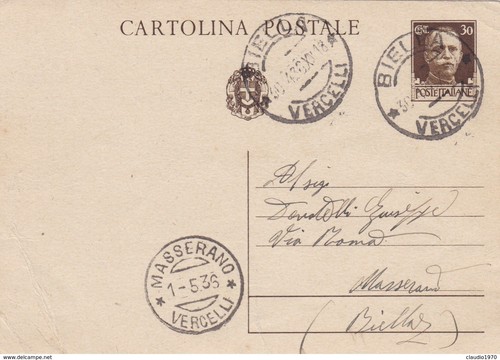 CARTOLINA POSTALE
CENT. 30
POSTE ITALIANE
BIELLA
30
* VERCELLI *
BIELLA
30
* VERCELLI
Al sig.
Giuseppe
Via Roma
Masserano
(Biella)
MASSERANO
1-5.36
* VERCELLI *
delcampe.net
claudio1970